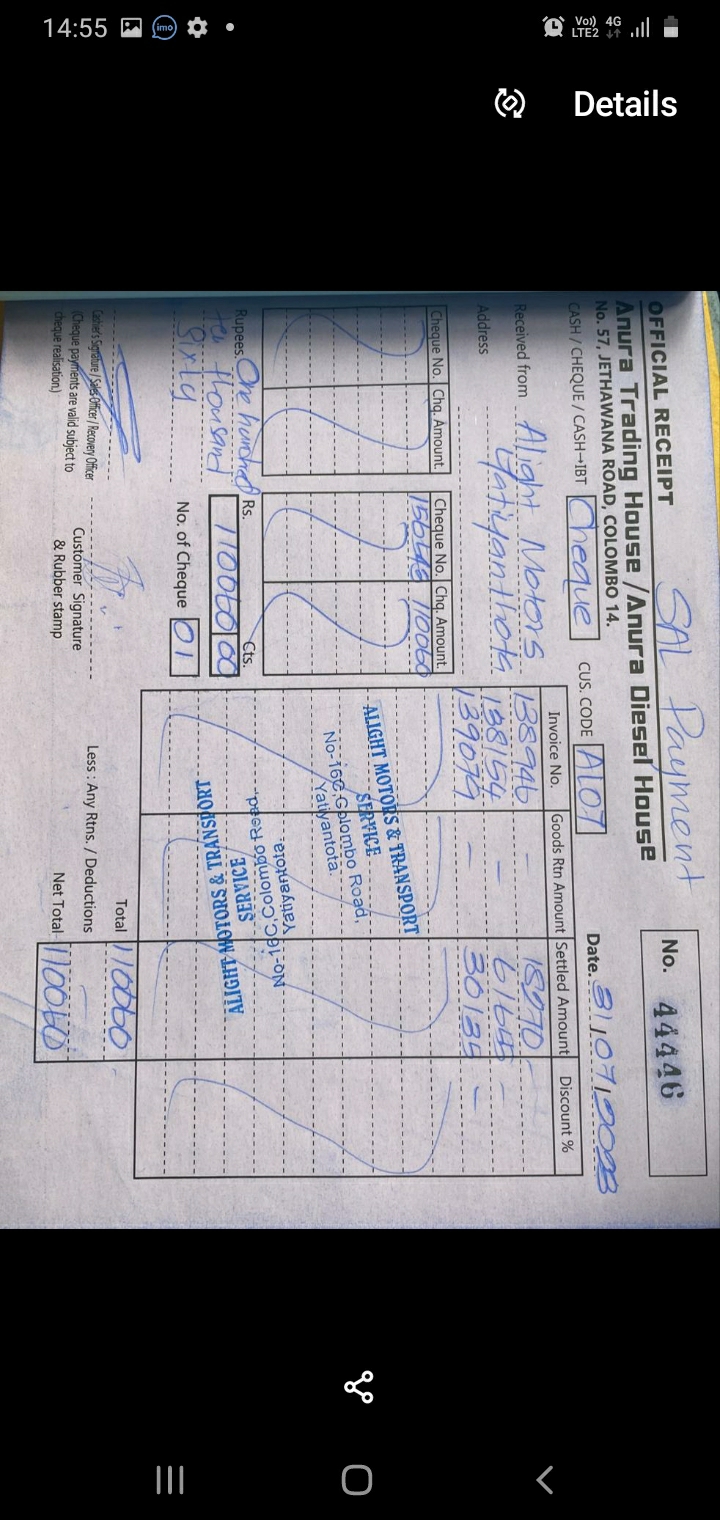 14:55
imo
Vo)) 4G
LTE2
Details
SAL Payment
OFFICIAL RECEIPT
No. 44446
Anura Trading House / Anura Diesel House
No. 57, JETHAWANA ROAD, COLOMBO 14.
Date. 31/07/2023
CASH / CHEQUE / CASH→IBT Cheque
CUS. CODE AL07
Received from Alight Motors
Address Yatiyanthota
Cheque No. Chq. Amount. Cheque No. Chq. Amount.
110060
Invoice No. Goods Rtn Amount Settled Amount Discount %
138946 -
138154 - 61655 -
139079 - 30135 -
ALIGHT MOTORS & TRANSPORT
SERVICE
No-16C, Colombo Road,
Yatiyantota.
ALIGHT MOTORS & TRANSPORT
SERVICE
No-16C, Colombo Road,
Yatiyantota.
Rupees. One hundred
ten thousand
Sixty
Rs. Cts.
110060 00
No. of Cheque 01
Total 110060
Less : Any Rtns. / Deductions -
Net Total 110060
Cashier's Signature / Sales Officer / Recovery Officer
(Cheque payments are valid subject to
cheque realisation.)
Customer Signature
& Rubber stamp